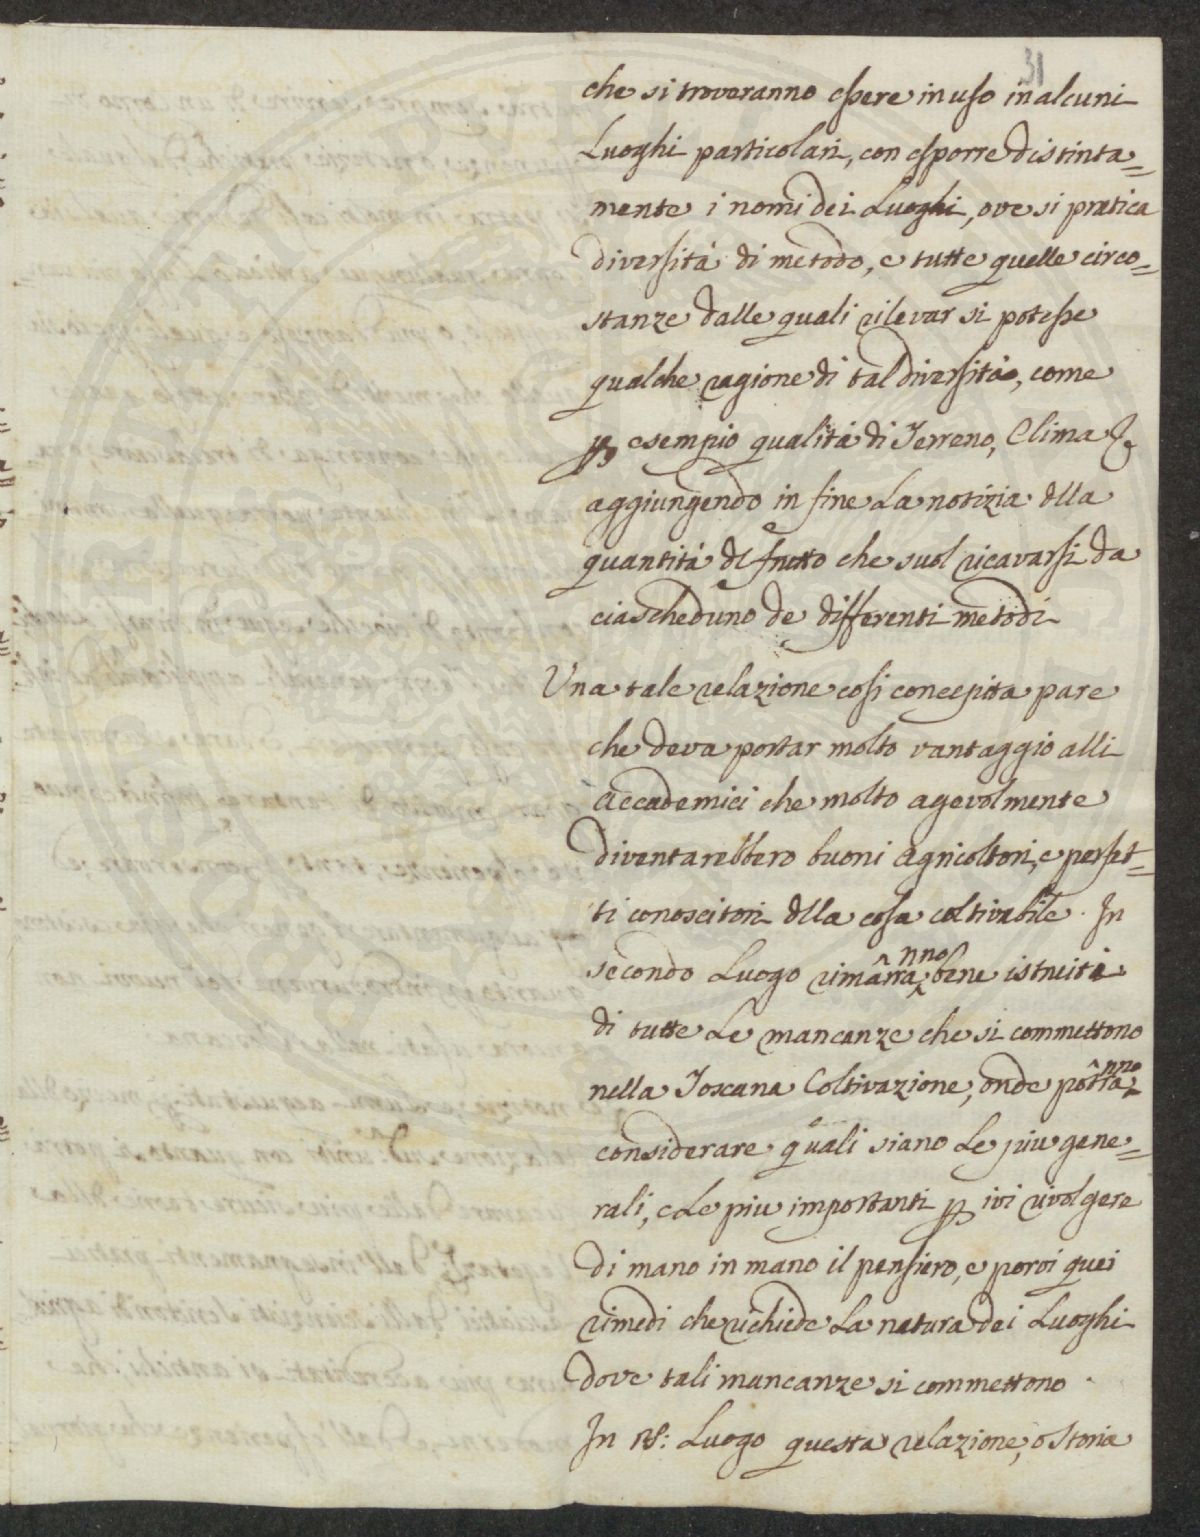 31
che si troveranno essere in uso in alcuni
Luoghi particolari, con esporre distinta=
mente i nomi dei Luoghi, ove si pratica
diversità di metodo, e tutte quelle circo=
stanze dalle quali rilevar si potesse
qualche ragione di tal diversità, come
p esempio qualità di Terreno, Clima &
aggiungendo in fine La notizia dlla
quantità del frutto che suol ricavarsi da
ciascheduno de differenti metodi
Una tale relazione così concepita pare
che deva portar molto vantaggio alli
Accademici che molto agevolmente
diventarebbero buoni Agricoltori, e perfet=
ti conoscitori dlla cosa coltivabile. In
secondo Luogo rimarranno bene istruiti
di tutte Le mancanze che si commettono
nella Toscana Coltivazione, onde potranno
considerare quali siano Le piu gene=
rali, e Le piu importanti p ivi rivolgere
di mano in mano il pensiero, e porvi quei
rimedi che richiede La natura dei Luoghi
dove tali mancanze si commettono.
In Luogo questa relazione, o Storia